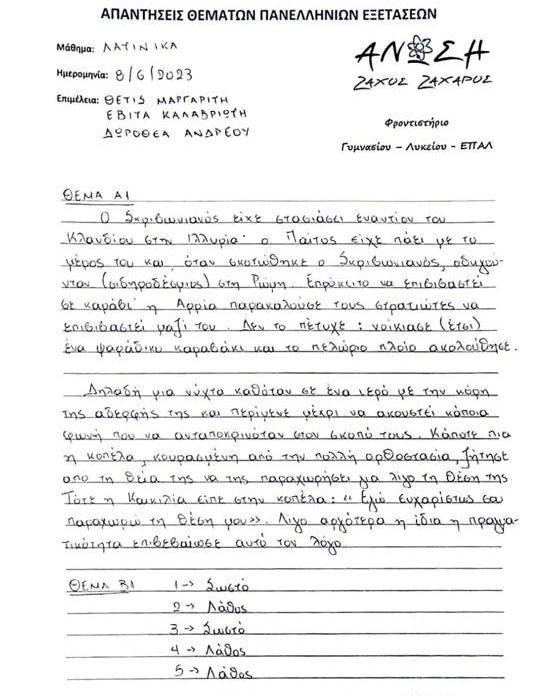 ΑΠΑΝΤΗΣΕΙΣ ΘΕΜΑΤΩΝ ΠΑΝΕΛΛΗΝΙΩΝ ΕΞΕΤΑΣΕΩΝ
Μάθημα: ΛΑΤΙΝΙΚΑ
Ημερομηνία: 8/6/2023
Επιμέλεια: ΘΕΤΙΣ ΜΑΡΓΑΡΙΤΗ
ΕΒΙΤΑ ΚΑΛΑΒΡΙΩΤΗ
ΔΩΡΟΘΕΑ ΑΝΔΡΕΟΥ
ΑΝΩΣΗ
ΖΑΧΟΣ ΖΑΧΑΡΟΣ
Φροντιστήριο
Γυμνασίου – Λυκείου - ΕΠΑΛ
ΘΕΜΑ Α1
Ο Σκριβωνιανός είχε στασιάσει εναντίον του
Κλαυδίου στην Ιλλυρία· ο Παίτος είχε πάει με το
μέρος του και, όταν σκοτώθηκε ο Σκριβωνιανός, οδηγού-
νταν (σιδηροδέσμιος) στη Ρώμη. Επρόκειτο να επιβιβαστεί
σε καράβι· η Αρρία παρακαλούσε τους στρατιώτες να
επιβιβαστεί μαζί του. Δεν το πέτυχε: νοίκιασε (έτσι)
ένα ψαράδικο καραβάκι και το πελώριο πλοίο ακολούθησε.
Δηλαδή μια νύχτα καθόταν σε ένα ιερό με την κόρη
της αδερφής της και περίμενε μέχρι να ακουστεί κάποια
φωνή που να ανταποκρινόταν στον σκοπό τους. Κάποτε πια
η κοπέλα, κουρασμένη από την πολλή ορθοστασία, ζήτησε
από τη θεία της να της παραχωρήσει για λίγο τη θέση της
Τότε η Καικιλία είπε στην κοπέλα: «Εγώ ευχαρίστως σου
παραχωρώ τη θέση μου». Λίγο αργότερα η ίδια η πραγμα-
τικότητα επιβεβαίωσε αυτό τον λόγο
ΘΕΜΑ Β1 1 → Σωστό
2 → Λάθος
3 → Σωστό
4 → Λάθος
5 → Λάθος